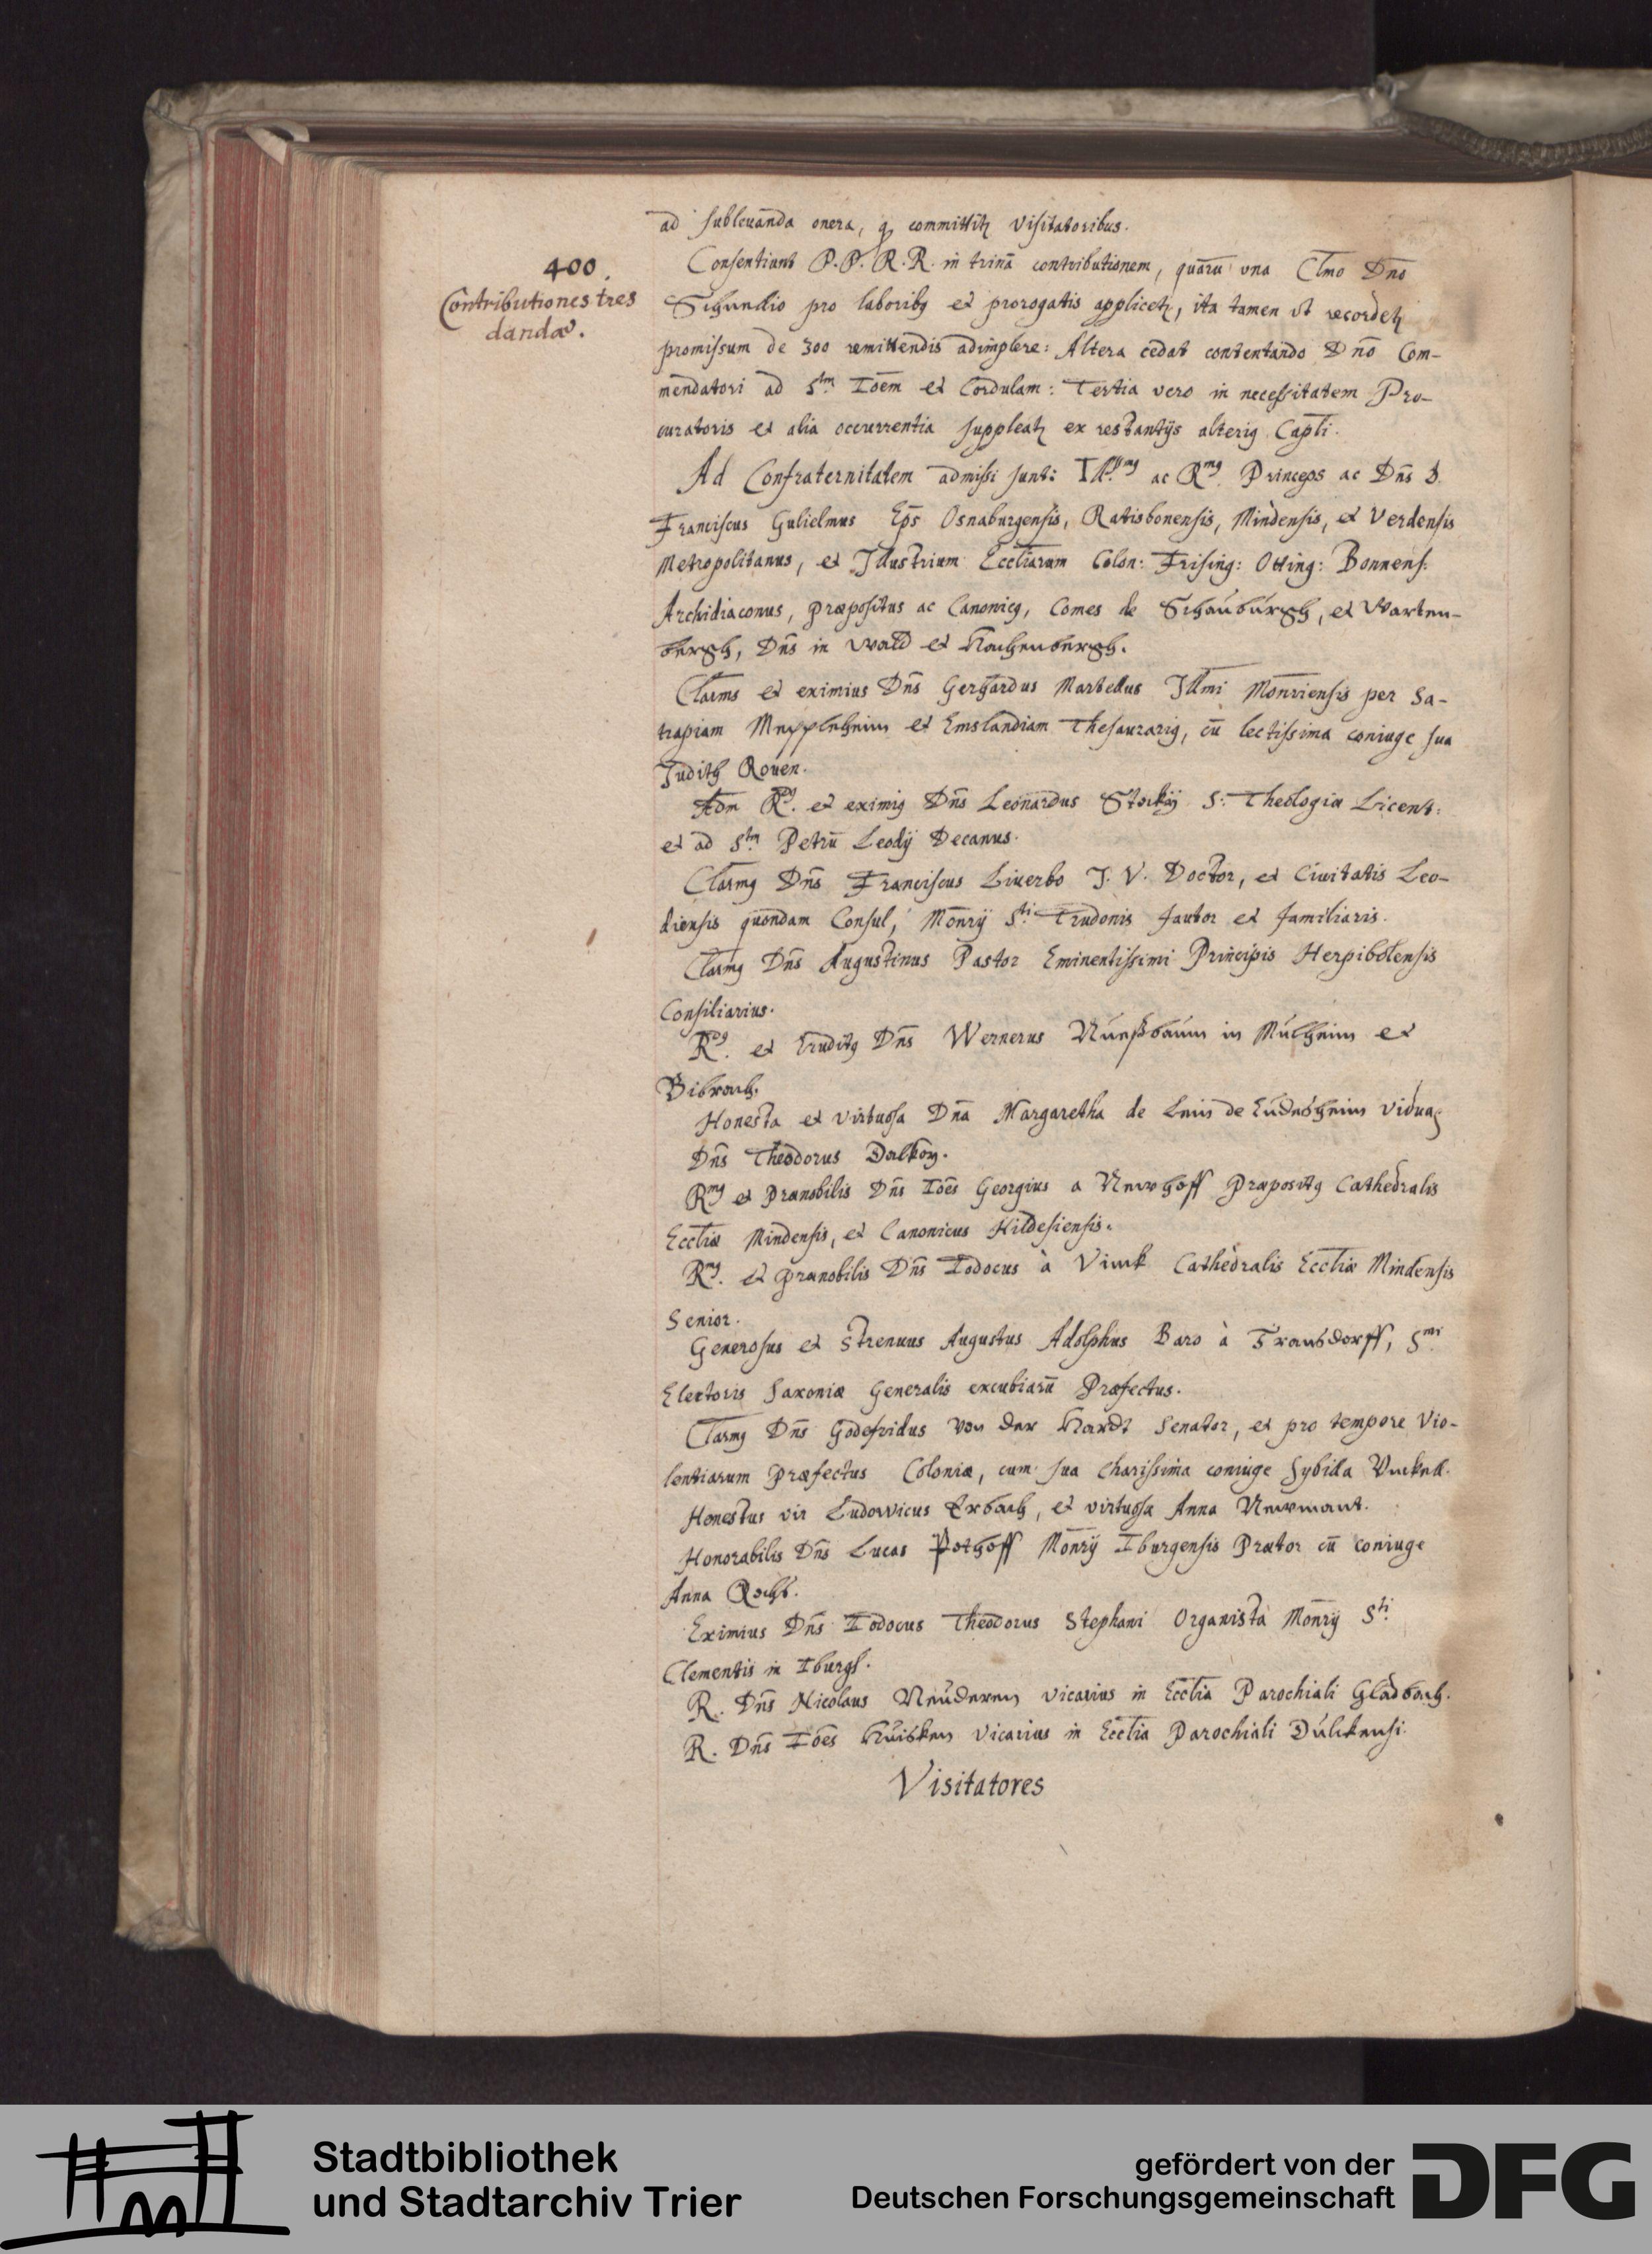 ad subleuanda onera, q committitz visitatoribus.
400.
Contributiones tres
dandæ.
Consentiunt P.P. R.R. in trinā contributionem, quarū vna Clmo Dno
Schundio pro laboribq et prorogatis applicetz, ita tamen vt recordetz
promissum de 300 remittendis adimplere: Altera cedat contentando Dno Com-
mendatori ad Stm Ioēm et Cordulam: Tertia vero in necessitatem Pro-
curatoris et alia occurrentia suppleatz ex restantijs alteriq Capli.
Ad Confraternitatem admissi sunt: Illmq ac Rmq Princeps ac Dns D.
Franciscus Gulielmus Eps Osnaburgensis, Ratisbonensis, Mindensis, et Verdensis
Metropolitanus, et Illustrium Eccliarum Colon: Frising: Otting: Bonnens:
Archidiaconus, præpositus ac Canonicq, Comes de Schauburgh, et Warten-
bergh, Dns in Wald et Hachenbergh.
Clarms et eximius Dns Gerhardus Martellus Illmi Monriensis per Sa-
trapiam Meppleheim et Emslandiam Thesaurariq, cū lectissima coniuge sua
Judith Rouen.
Adm Rdq. et eximiq Dns Leonardus Stockij S. Theologiæ Licent:
et ad Stm Petrū Leodij Decanus.
Clarmq Dns Franciscus Liuerbo J. V. Doctor, et Ciuitatis Leo-
diensis quondam Consul, Monrij Sti Trudonis fautor et familiaris.
Clarmq Dns Augustinus Pastor Eminentissimi Principis Herpibolensis
Consiliarius.
Rdq. et Eruditq Dns Wernerus Nueßbaum in Mulheim et
Bibrach.
Honesta et virtuosa Dna Margaretha de Leuis de Eudesheim vidua
Dns Theodorus Dalkom.
Rmq et Prænobilis Dns Ioēs Georgius a Newhoff Præpositq Cathedralis
Eccliæ Mindensis, et Canonicus Hildesiensis.
Rmq. et prænobilis Dns Iodocus à Vinck Cathedralis Eccliæ Mindensis
Senior.
Generosus et Strenuus Augustus Adolphus Baro à Transdorff, Smi
Electoris Saxoniæ Generalis excubiarū Præfectus.
Clarmq Dns Godefridus von der Hardt Senator, et pro tempore Vio-
lentiarum Præfectus Coloniæ, cum sua charissima coniuge Sybilla Vnckell.
Honestus vir Ludowicus Erbach, et virtuosa Anna Newmant.
Honorabilis Dns Lucas Pothoff Monrij Iburgensis Prætor cū coniuge
Anna Rochs.
Eximius Dns Iodocus Theodorus Stephani Organista Monrij Sti
Clementis in Iburgh.
R. Dns Nicolaus Neuderen vicarius in Ecclia Parochiali Gladbach.
R. Dns Ioēs Huisken Vicarius in Ecclia Parochiali Dulckensi.
Visitatores
Stadtbibliothek
und Stadtarchiv Trier
gefördert von der
Deutschen Forschungsgemeinschaft
DFG